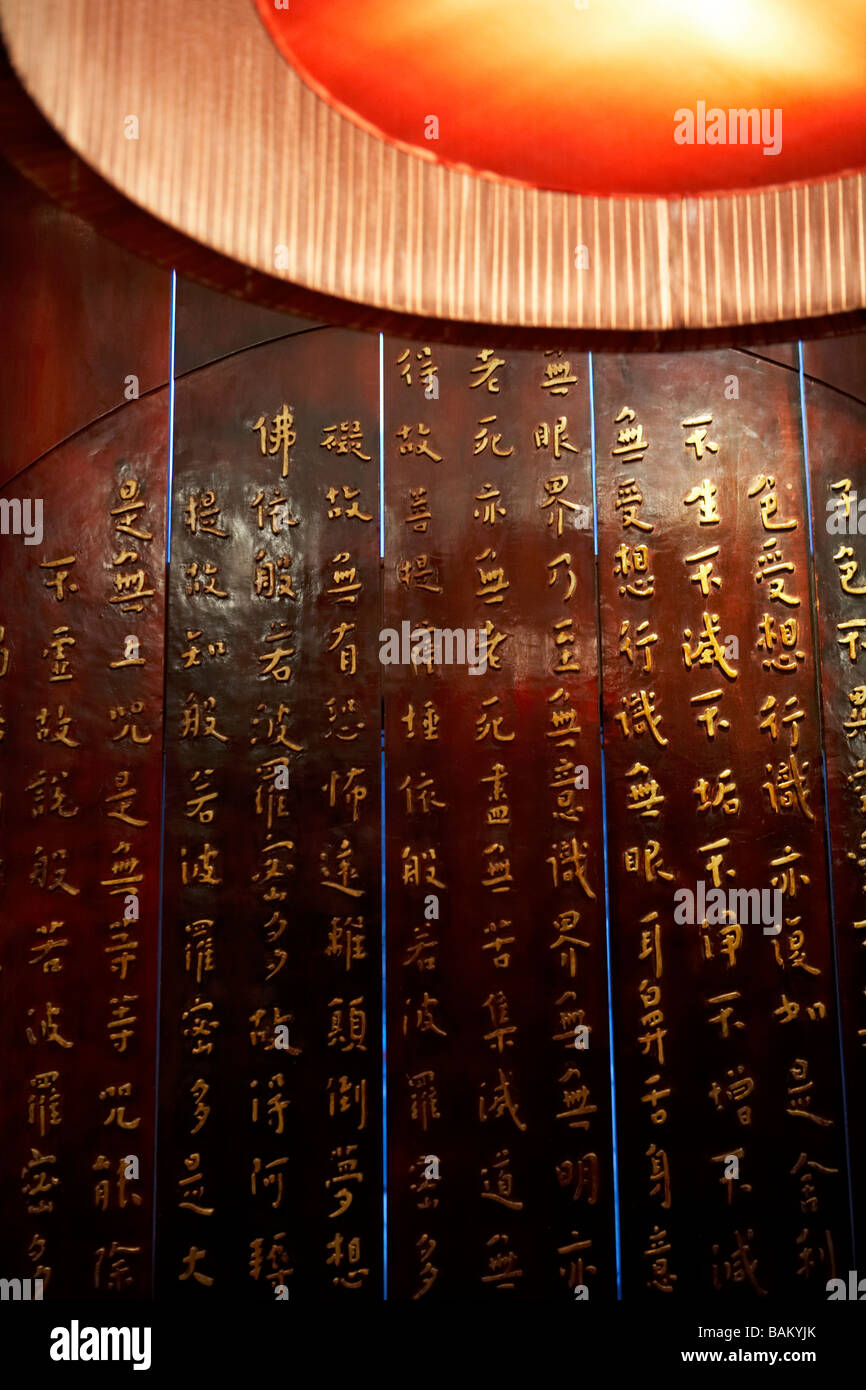 子色不異
色受想行識亦復如是舍利
不生不滅不垢不淨不增不減
無受想行識無眼耳鼻舌身意
無眼界乃至無意識界無無明亦
老死亦無老死盡無苦集滅道無
得故菩提薩埵依般若波羅蜜多
礙故無有恐怖遠離顛倒夢想
佛依般若波羅蜜多故得阿耨
提故知般若波羅蜜多是大
是無上咒是無等等咒能除
不虛故說般若波羅蜜多
alamy
alamy
alamy
alamy
alamy
Image ID: BAKYJK
www.alamy.com